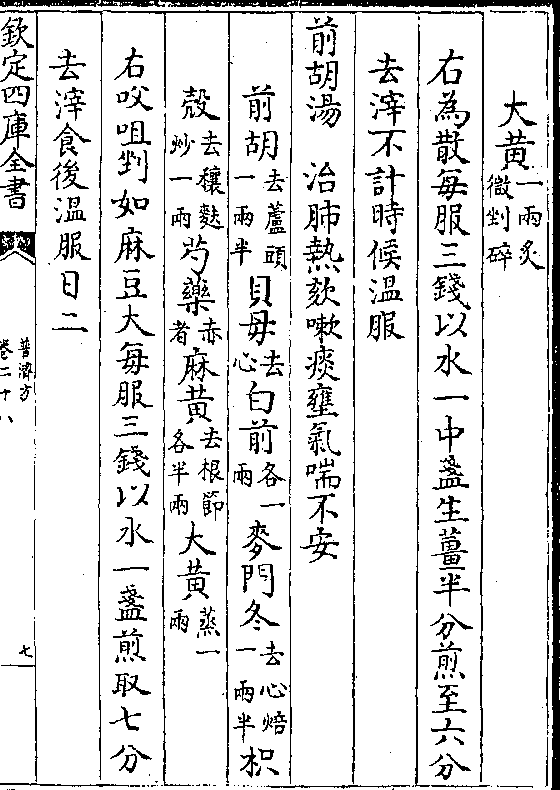 大黄一兩炙微剉碎
右為散每服三錢以水一中盞生薑半分煎至六分
去滓不計時候温服
前胡湯 治肺熱欬嗽痰壅氣喘不安
前胡去蘆頭一兩半貝母去心白前各一兩麥門冬去心焙一兩半枳
殼去穰麩炒一兩芍藥赤者麻黄去根節各半兩大黄蒸一兩
右㕮咀剉如麻豆大每服三錢以水一盞煎取七分
去滓食後温服日二
欽定四庫全書
普濟方
卷二十八
七